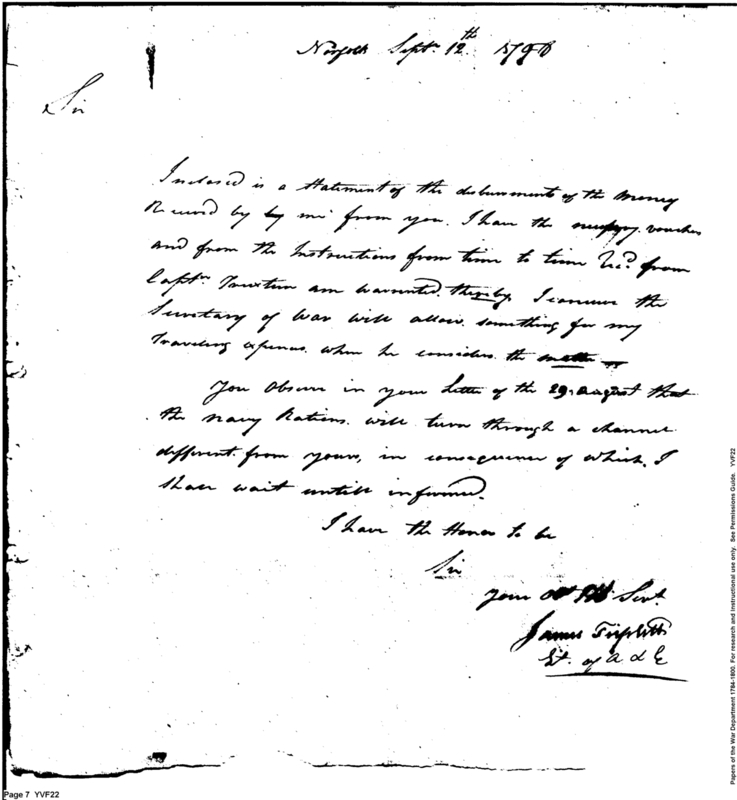 Norfolk Sept. 12th 1798
Sir
Inclosed is a statement of the disbursments of the Money
Received by by me from you. I have the necessary vouches
and from the Instructions from time to time Recd from
Captn Truxtun am warented thereby. I conceive the
Secretary of War will allow something for my
Traveling expences when he considers the matter
You Observe in your Letter of the 29 August that
the navy Rations will turn through a channel
different from yours, in consequence of which I
shall wait untill informed.
I have the Honor to be
Sir
your Obt Servt
James Triplett
Lt. of A & E
Page 7 YVF22
Papers of the War Department 1784-1800. For research and instructional use only. See Permissions Guide. YVF22